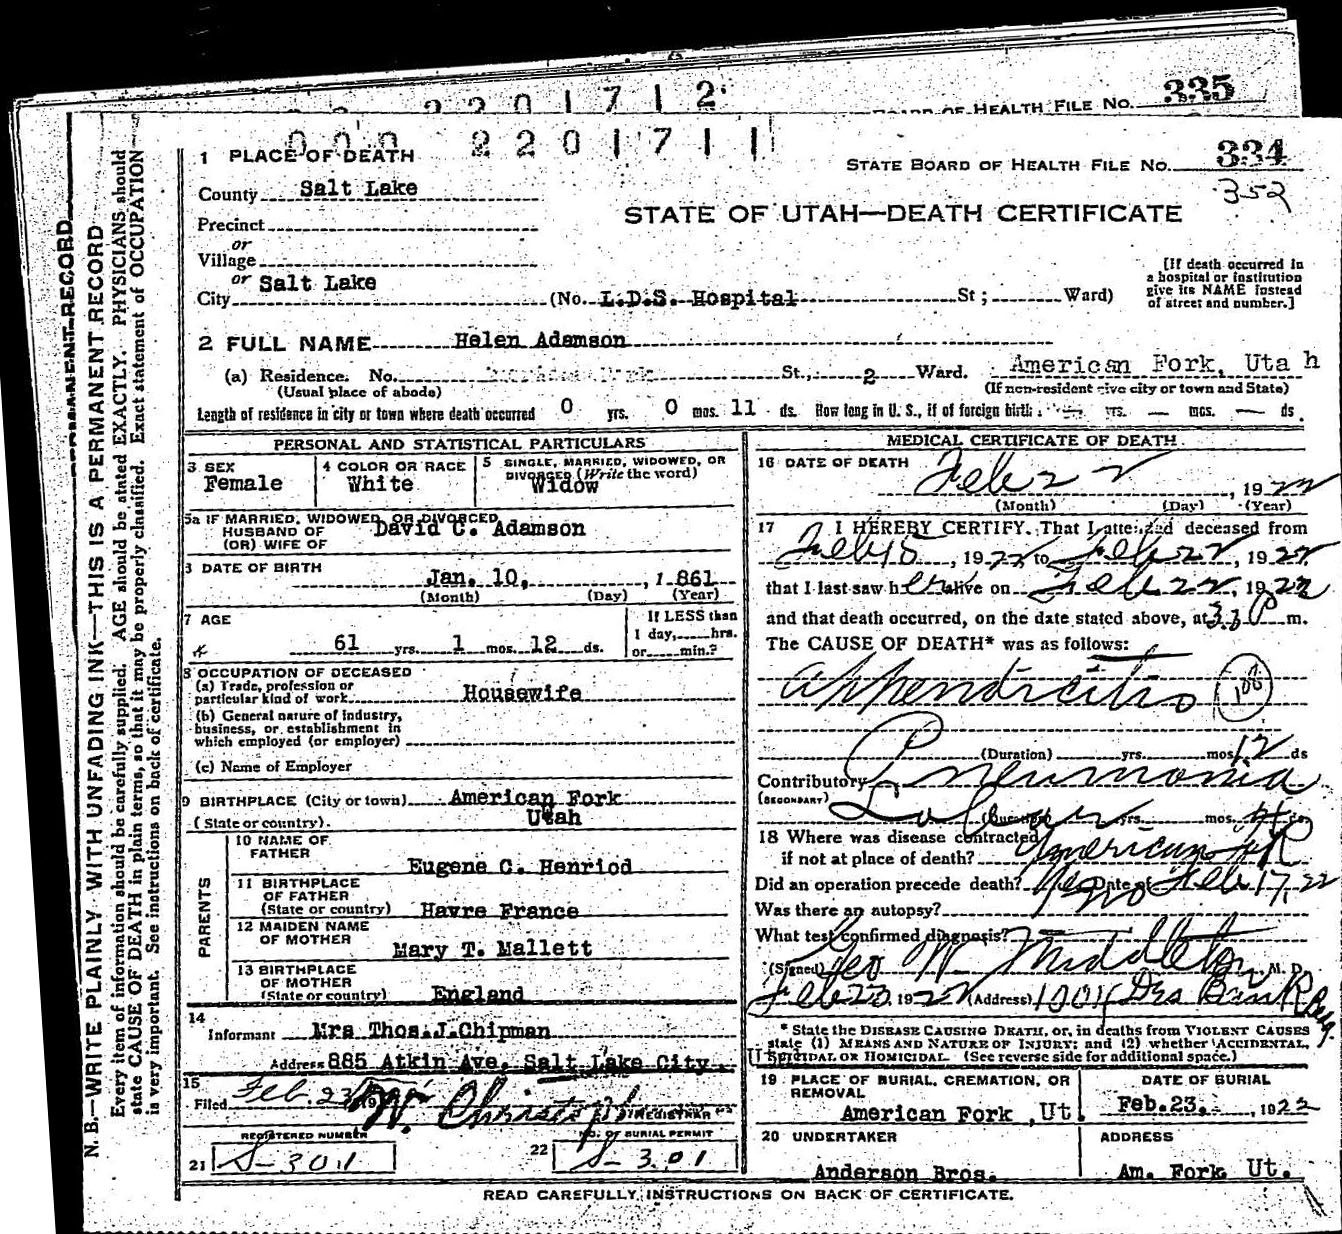 2 2 0 1 7 1 2
BOARD OF HEALTH FILE NO. 335
0 0 0 2 2 0 1 7 1 1
1 PLACE OF DEATH
STATE BOARD OF HEALTH FILE NO. 334
352
County Salt Lake
STATE OF UTAH—DEATH CERTIFICATE
Precinct
or
Village
or
City Salt Lake (No. L.D.S. Hospital St; Ward)
[If death occurred in
a hospital or institution
give its NAME instead
of street and number.]
2 FULL NAME Helen Adamson
(a) Residence. No. St., 2 Ward. American Fork, Utah
(Usual place of abode) (If non-resident give city or town and State)
Length of residence in city or town where death occurred 0 yrs. 0 mos. 11 ds. How long in U. S., if of foreign birth: yrs. — mos. — ds.
PERSONAL AND STATISTICAL PARTICULARS
3 SEX
Female
4 COLOR OR RACE
White
5 SINGLE, MARRIED, WIDOWED, OR
DIVORCED (Write the word)
Widow
5a IF MARRIED, WIDOWED, OR DIVORCED
HUSBAND OF
(OR) WIFE OF
David C. Adamson
DATE OF BIRTH
Jan. 10, 1861
(Month) (Day) (Year)
7 AGE
61 yrs. 1 mos. 12 ds.
If LESS than
1 day, hrs.
or min.?
8 OCCUPATION OF DECEASED
(a) Trade, profession or
particular kind of work Housewife
(b) General nature of industry,
business, or establishment in
which employed (or employer)
(c) Name of Employer
9 BIRTHPLACE (City or town) American Fork
(State or country). Utah
PARENTS
10 NAME OF
FATHER
Eugene C. Henriod
11 BIRTHPLACE
OF FATHER
(State or country) Havre France
12 MAIDEN NAME
OF MOTHER
Mary T. Mallett
13 BIRTHPLACE
OF MOTHER
(State or country) England
14
Informant Mrs Thos.J.Chipman
Address 885 Atkin Ave, Salt Lake City.
15
Filed Feb. 23
REGISTRAR
REGISTERED NUMBER
21 S-301
NO. of BURIAL PERMIT
22 S-301
MEDICAL CERTIFICATE OF DEATH
16 DATE OF DEATH Feb 22, 1922
(Month) (Day) (Year)
17 I HEREBY CERTIFY, That I attended deceased from
Feb 15, 1922 to Feb 22, 1922
that I last saw her alive on Feb 22, 1922
and that death occurred, on the date stated above, at 3.30 P m.
The CAUSE OF DEATH* was as follows:
Appendicitis
(Duration) yrs. mos. 12 ds
Contributory Pneumonia
(SECONDARY) Lobar
(Duration) yrs. mos. 4 ds.
18 Where was disease contracted
if not at place of death? American Fk
Did an operation precede death? Yes Date of Feb 17, 22
Was there an autopsy? No
What test confirmed diagnosis?
(Signed) Geo W. Middleton, M. D.
Feb 23 1922 (Address) 1004 Des Bank Bldg.
* State the DISEASE CAUSING DEATH, or, in deaths from VIOLENT CAUSES
state (1) MEANS AND NATURE OF INJURY; and (2) whether ACCIDENTAL,
SUICIDAL OR HOMICIDAL. (See reverse side for additional space.)
19 PLACE OF BURIAL, CREMATION, OR
REMOVAL
American Fork, Ut.
DATE OF BURIAL
Feb.23, 1922
20 UNDERTAKER
Anderson Bros.
ADDRESS
Am. Fork Ut.
READ CAREFULLY INSTRUCTIONS ON BACK OF CERTIFICATE.
PERMANENT RECORD
N. B.—WRITE PLAINLY WITH UNFADING INK—THIS IS A PERMANENT RECORD
Every item of information should be carefully supplied. AGE should be stated EXACTLY. PHYSICIANS should
state CAUSE OF DEATH in plain terms, so that it may be properly classified. Exact statement of OCCUPATION
is very important. See instructions on back of certificate.